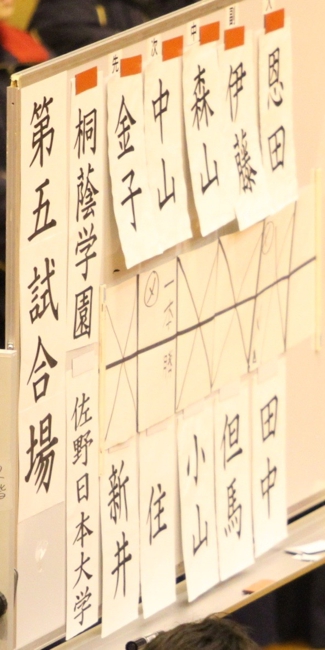 第五試合場
桐蔭学園
佐野日本大学
先
次
中
大
金子
中山
森山
伊藤
恩田
新井
住
小山
但馬
田中